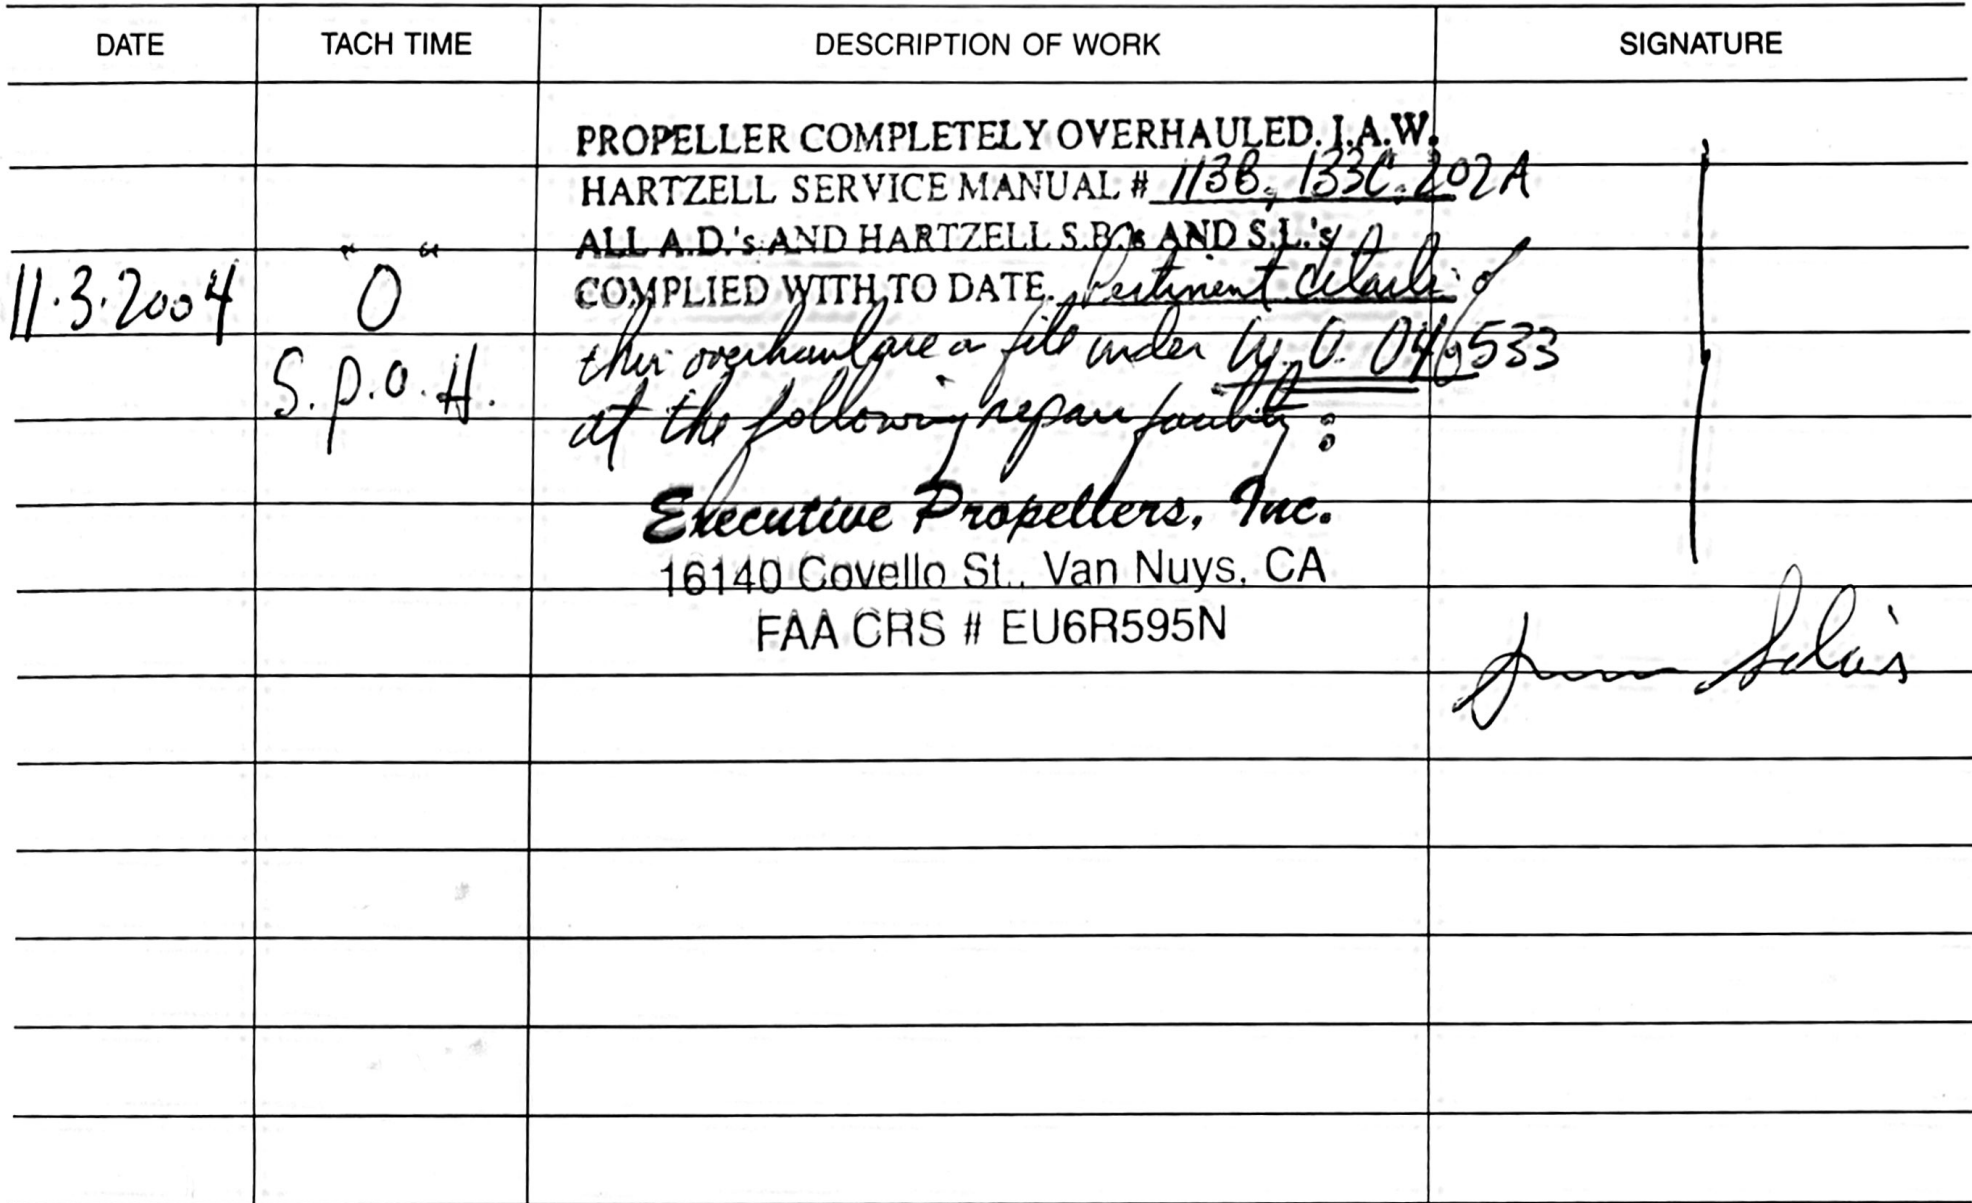 DATE TACH TIME DESCRIPTION OF WORK SIGNATURE
PROPELLER COMPLETELY OVERHAULED. I.A.W.
HARTZELL SERVICE MANUAL # 113B, 133C, 202A
ALL A.D.'s AND HARTZELL S.B.'s AND S.L.'s
11.3.2004 "0" COMPLIED WITH TO DATE. Pertinent details of
this overhaul are on file under W.O. 533
S.P.O.H. at the following repair facility:
Executive Propellers, Inc.
16140 Covello St., Van Nuys, CA
FAA CRS # EU6R595N